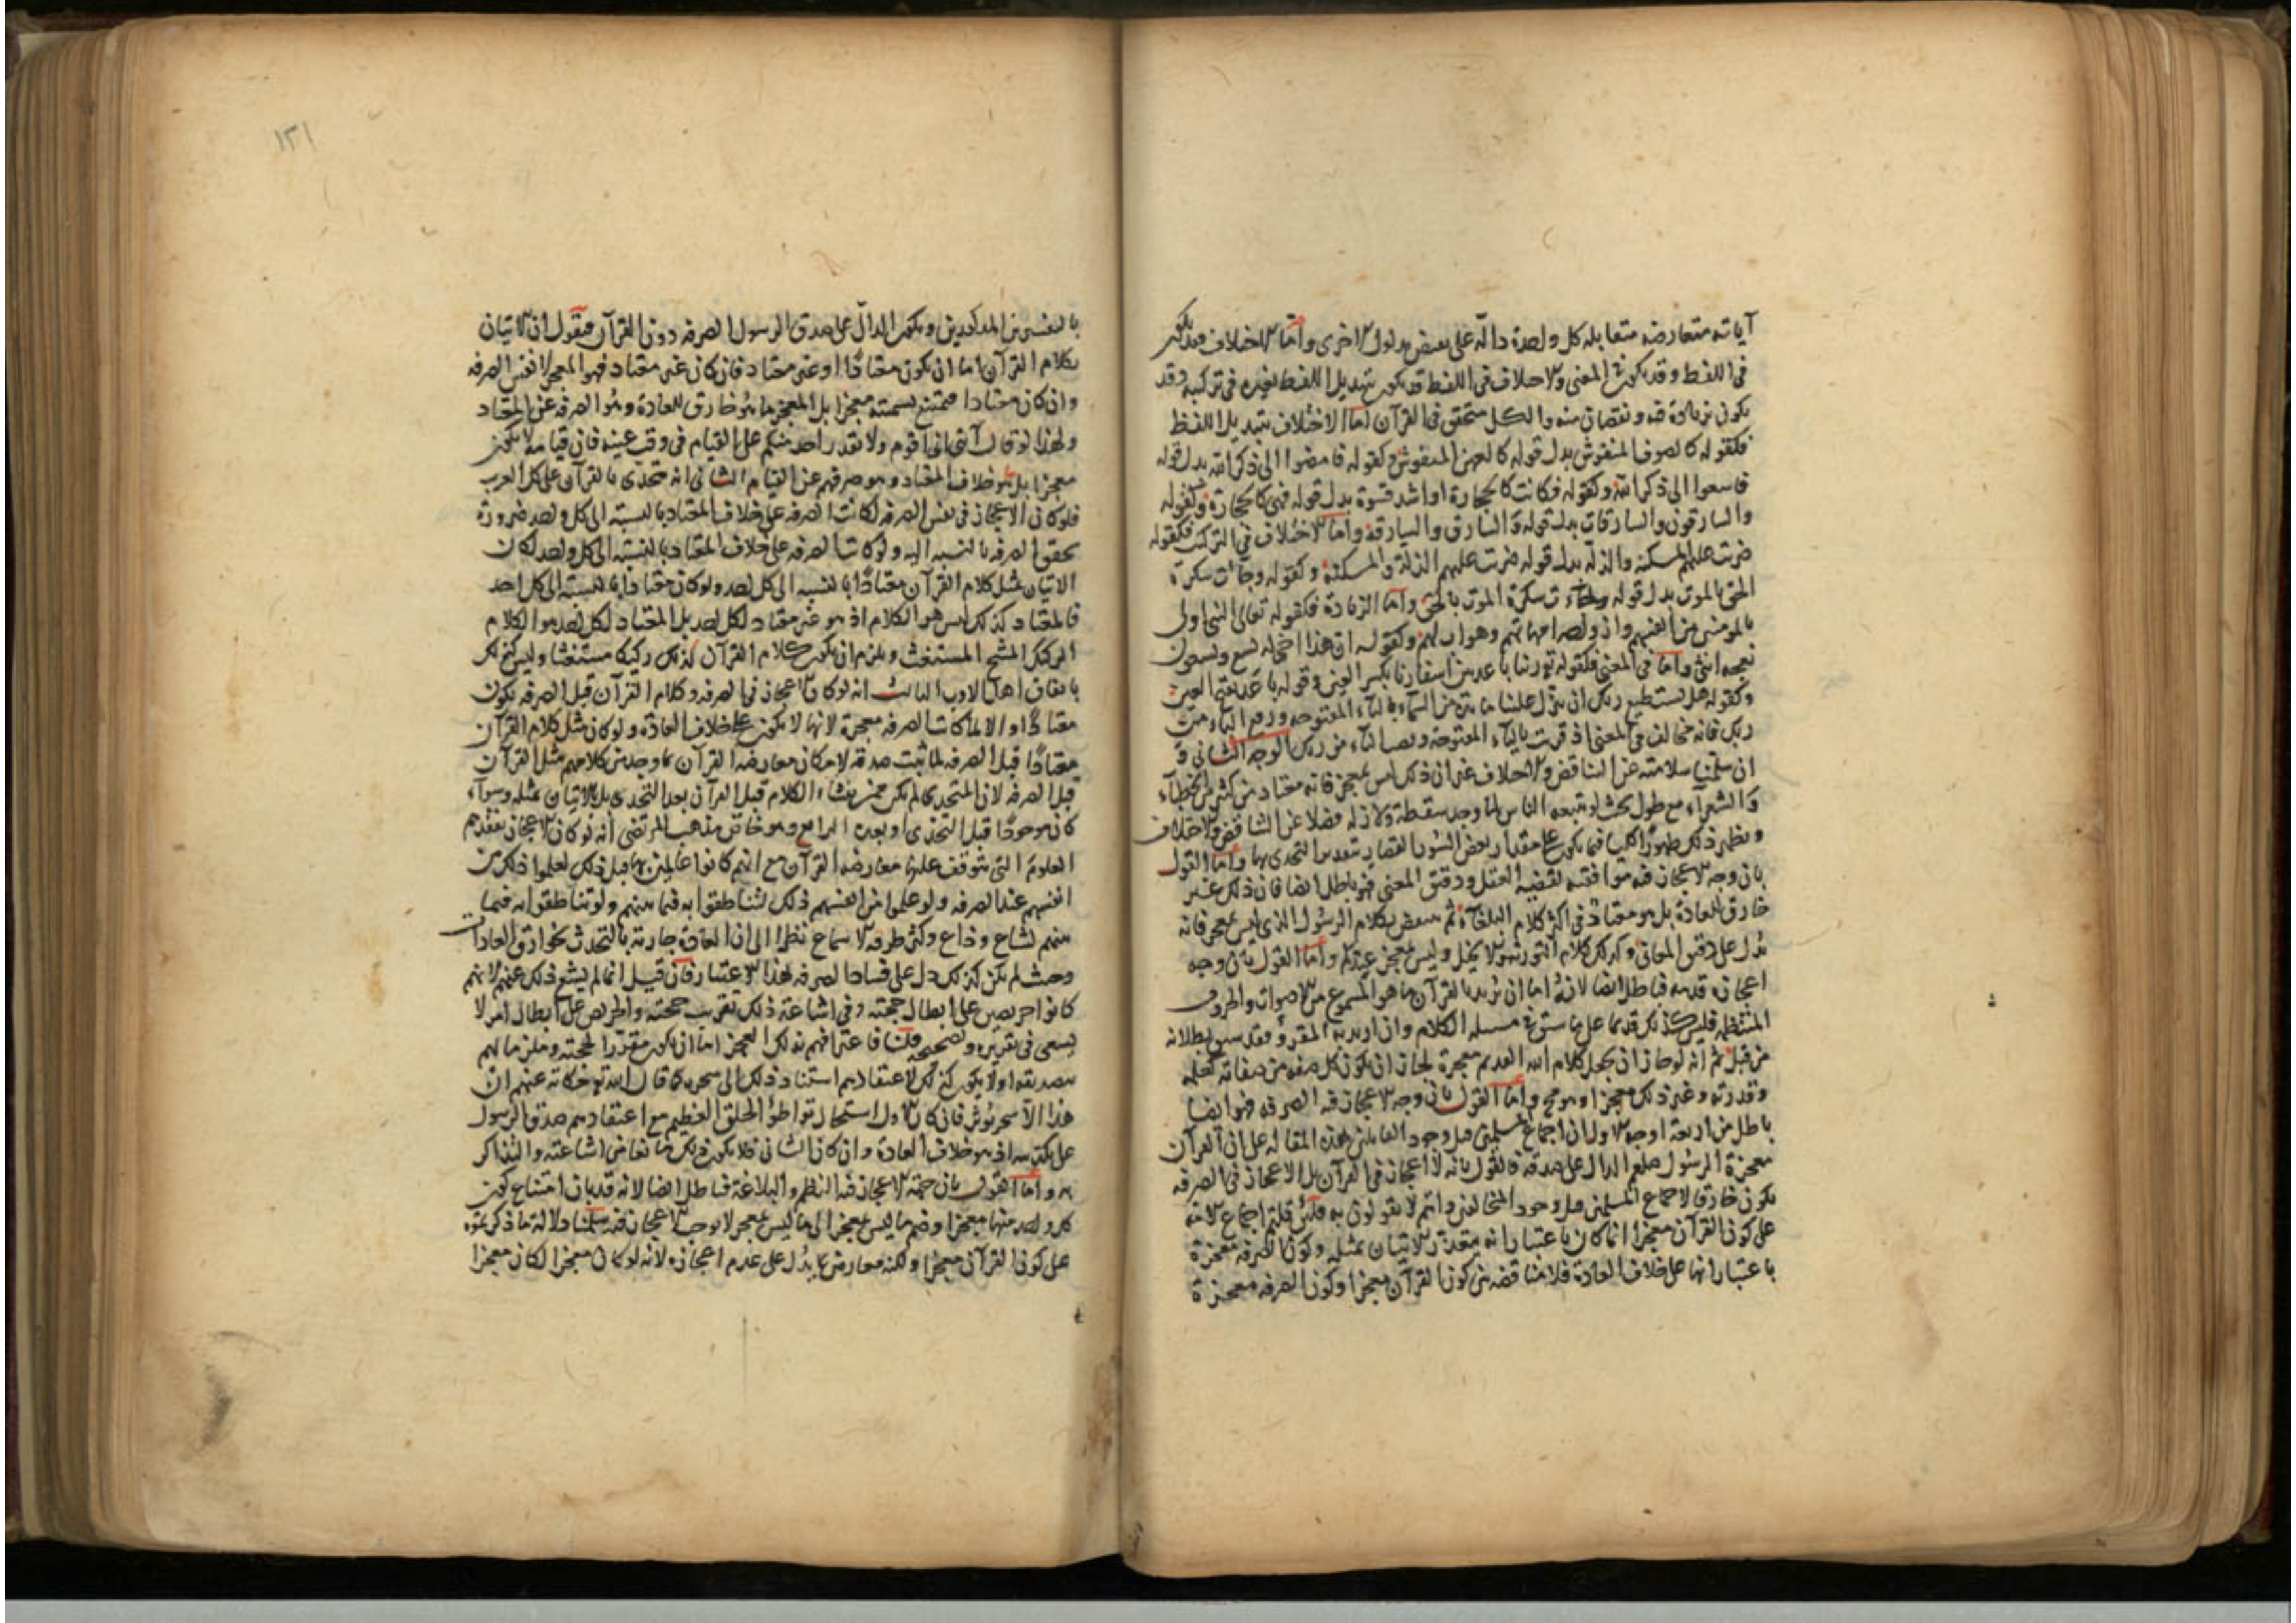 آياته متعارضه متقابله كل واحدة دالة على نقيض مدلول الاخرى واما الاختلاف فقد يكون
فى اللفظ وقد يكون فى المعنى والاختلاف فى اللفظ قد يكون بتبديل اللفظ بغيره فى تركيبه وقد
يكون بزيادة فيه ونقصان منه والكل متحقق فى القرآن اما الاختلاف بتبديل اللفظ
فكقوله كالصوف المنفوش بدل قوله كالعهن المنفوش وكقوله فامضوا الى ذكر الله بدل قوله
فاسعوا الى ذكر الله وكقوله فكانت كالحجارة او اشد قسوة بدل قوله فهى كالحجارة وكقوله
والسارقون والسارقات بدل قوله والسارق والسارقة واما الاختلاف فى التركيب فكقوله
ضربت عليهم المسكنة والذلة بدل قوله ضربت عليهم الذلة والمسكنة وكقوله وجاءت سكرة
الحق بالموت بدل قوله وجاءت سكرة الموت بالحق واما الزيادة فكقوله تعالى النبى اولى
بالمومنين من انفسهم وازواجه امهاتهم وهو اب لهم وكقوله ان هذا اخى له تسع وتسعون
نعجه انثى واما فى المعنى فكقوله ربنا باعد بين اسفارنا بكسر العين وقوله باعد بفتح العين
وكقوله هل يستطيع ربك ان ينزل علينا مايدة من السماء بالياء المفتوحه ورفع الباء من
ربك فانه مخالف فى المعنى اذ قرئت بالتاء المفتوحة ونصب الباء من ربك الوجه الثانى و
ان سلمنا سلامته عن التناقض والاختلاف غير ان ذلك ليس بمعجز فانه معتاد من كثير من الخطباء
والشعراء مع طول بحيث لو تتبعه الناس لما وجد سقطة ولا زله فضلا عن التناقض والاختلاف
ويظهر ذلك ظهورا كليا فيما يكون على مقدار بعض السور القصار بتقدير التحدى بها واما القول
بان وجه الاعجاز فيه موافقته لقضية العقل ودقيق المعنى فهو باطل ايضا فان ذلك غير
خارق للعادة بل هو معتاد فى اكثر كلام البلغاء ثم ينتقض بكلام الرسول الذى ليس بمعجز فانه
يدل على دقيق المعانى وكذلك كلام التوريه والانجيل وليس بمعجز عندكم واما القول بان وجه
اعجازه قدمه فباطل ايضا لانه اما ان يريد بالقرآن ما هو المسموع من الاصوات والحروف
المنتظمه فليس كذلك قديما على ما سبق فى مسله الكلام وان اريد به المقروء فقد سبق بطلانه
من قبل ثم انه لو جاز ان يجعل كلام الله القديم معجزة لجاز ان يكون كل صفه من صفاته كعلمه
وقدرته وغير ذلك معجزا وهو مح واما القول بان وجه الاعجاز فيه الصرفه فهو ايضا
باطل من اربعة اوجه الاول ان اجماع المسلمين قبل وجود القايلين بهذه المقاله على ان القرآن
معجزة الرسول صلعم الدال على صدقه فالقول بانه لا اعجاز فى القرآن بل الاعجاز فى الصرفه
يكون خارقا لاجماع المسلمين قبل وجود المخالفين وانتم لا تقولون به فلئن قلتم اجماع الامه
على كون القرآن معجزا انما كان باعتبار انه يتعذر الاتيان بمثله وكون الصرفه معجزة
باعتبار انها على خلاف العادة فلا مناقضه بين كون القرآن معجزا وكون الصرفه معجزة
١٢١
بالتفسيرين المذكورين ويكون الدال على صدق الرسول الصرفه دون القرآن فنقول ان الاتيان
بكلام القرآن اما ان يكون معتادا او غير معتاد فان كان غير معتاد فهو المعجز لا نفس الصرفه
وان كان معتادا فيمتنع تسميته معجزا بل المعجز ما هو خارق للعادة وهو الصرفه عن المعتاد
ولهذا لو قال آيتى انى اقوم ولا يقدر احد منكم على القيام فى وقت عينه فان قيامه لا يكون
معجزا بل هو خلاف المعتاد وهو صرفهم عن القيام الثانى انه تحدى بالقرآن على كل العرب
فلو كان الاعجاز فى نفس الصرفه لكانت الصرفه على خلاف المعتاد بالنسبة الى كل واحد ضرورة
تحقق الصرفه بالنسبه اليه ولو كانت الصرفه على خلاف المعتاد بالنسبة الى كل واحد لكان
الاتيان بمثل كلام القرآن معتادا بالنسبه الى كل احد ولو كان معتادا بالنسبة الى كل احد
فالمعتاد كذلك ليس هو الكلام اذ هو غير معتاد لكل احد بل المعتاد لكل احد هو الكلام
الركيك المستغث ويلزم ان يكون كلام القرآن كذلك ركيكا مستغثا وليس كذلك
باتفاق اهل الادب الثالث انه لو كان الاعجاز فى الصرفه وكلام القرآن قبل الصرفه يكون
معتادا والا لما كانت الصرفه معجزة لانها لا تكون على خلاف العادة ولو كان مثل كلام القرآن
معتادا قبل الصرفه لما ثبت صدقه لامكان معارضة القرآن بما وجد من كلامهم مثل القرآن
قبل الصرفه لان المتحدى لم يكن بانشاء الكلام قبل القرآن بعد التحدى بل بالاتيان بمثله وسواء
كان موجودا قبل التحدى او بعده الرابع وهو خاص بمذهب المرتضى انه لو كان الاعجاز بفقدهم
العلوم التى يتوقف عليها معارضه القرآن مع انهم كانوا عالمين بها قبل ذلك لعلموا ذلك من
انفسهم عند الصرفه ولو علموا من انفسهم ذلك لتناطقوا به فيما بينهم ولو تناطقوا به فيما
بينهم لشاع وذاع وكثر طرقه الاسماع نظرا الى ان العادة جارية بالتحدث بخوارق العادات
وحيث لم يكن كذلك دل على فساد الصرفه بهذا الاعتبار فان قيل انما لم يشع ذلك عنهم لانهم
كانوا حريصين على ابطال حجته وفى اشاعة ذلك تقرير حجته والحريص على ابطال امر لا
يسعى فى تقريره وتصحيحه قلنا فاعترافهم بذلك العجز اما ان يكون مقررا لحجته وملزما لهم
تصديقه اولا يكون كذلك لاعتقادهم استناد ذلك الى سحره كما قال الله تع حكاية عنهم ان
هذا الا سحر يؤثر فان كان الاول استحال تواطؤ الخلق العظيم مع اعتقادهم صدق الرسول
على تكذيبه اذ هو خلاف العادة وان كان الثانى فلا يكون ذلك مانعا من اشاعته والتذاكر
به واما القول بان جهة الاعجاز فيه النظم والبلاغة فباطل ايضا لانه قد بان امتناع كون
كل واحد منهما معجزا وضم ما ليس بمعجز الى ما ليس بمعجز لا يوجب الاعجاز فيه سلمنا دلالة ما ذكرتموه
على كون القرآن معجزا ولكنه معارض بما يدل على عدم اعجازه لانه لو كان معجزا لكان معجزا